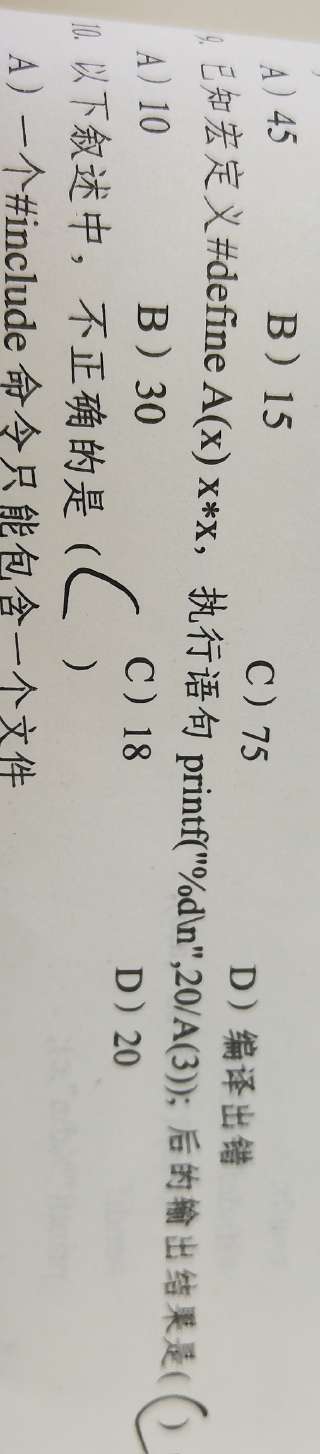 A) 45 B) 15 C) 75 D) 编译出错
9. 已知宏定义 #define A(x) x*x, 执行语句 printf("%d\n",20/A(3)); 后的输出结果是( )
A) 10 B) 30 C) 18 D) 20
10. 以下叙述中, 不正确的是 ( )
A) 一个#include 命令只能包含一个文件